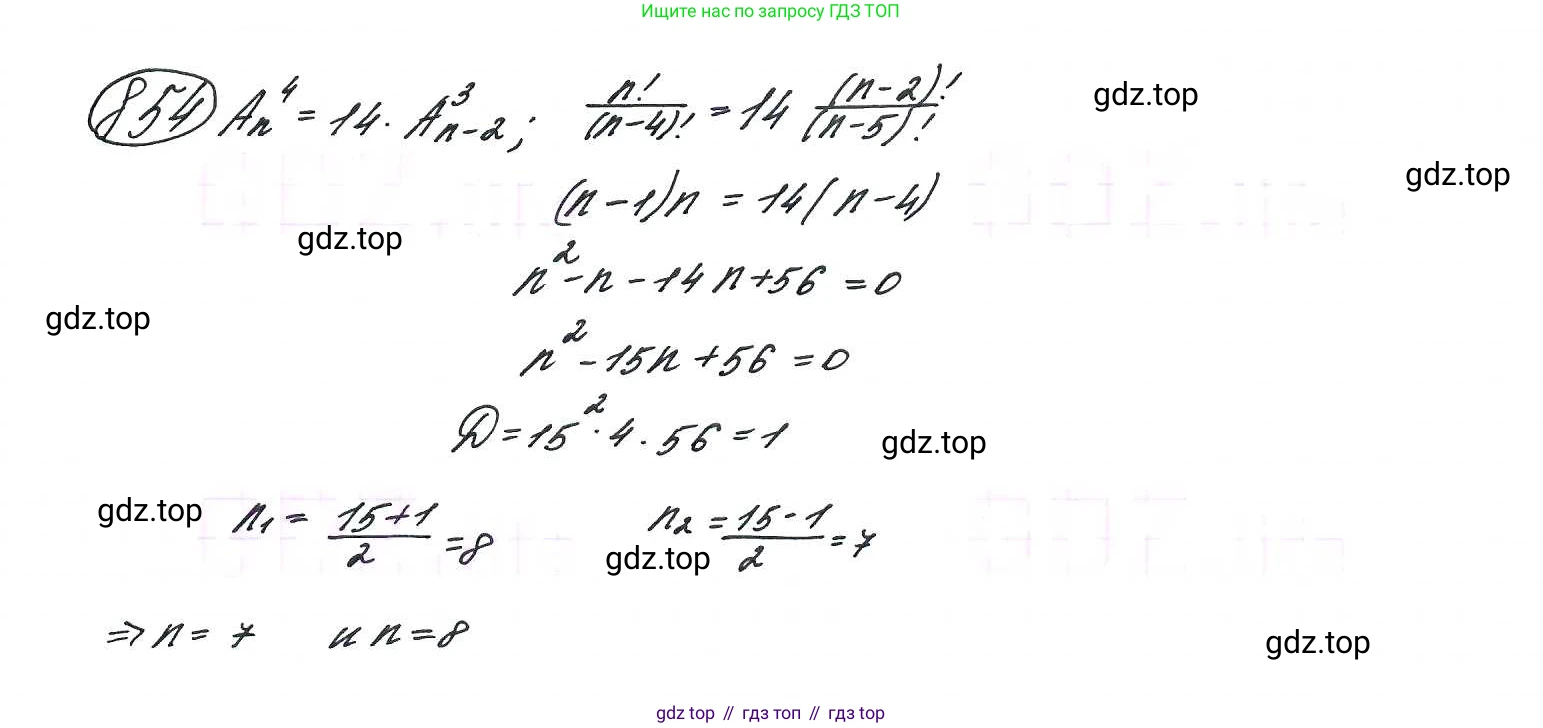 Ищите нас по запросу ГДЗ ТОП
854 A_n^4 = 14 · A_{n-2}^3 ; n!/(n-4)! = 14 (n-2)!/(n-5)!
gdz.top
(n-1)n = 14(n-4)
gdz.top
gdz.top
n^2 - n - 14n + 56 = 0
gdz.top
n^2 - 15n + 56 = 0
D = 15^2 · 4 · 56 = 1
gdz.top
gdz.top
n_1 = (15+1)/2 = 8 n_2 = (15-1)/2 = 7
gdz.top
⇒ n = 7 и n = 8
gdz.top
gdz.top // гдз топ // gdz.top